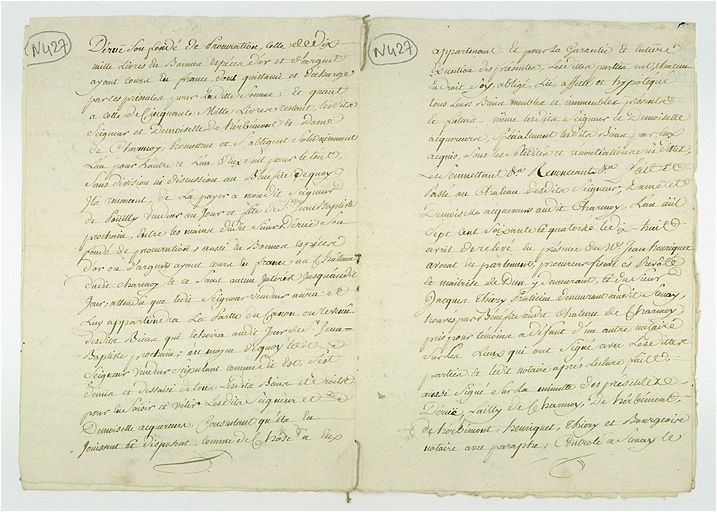 N427
Dérué Son fondé de Procuration, celle de dix
mille Livres en Bonnes espèces d'or et d'argent
ayant cours en france, dont quittance et decharge
par ces présentes pour laditte Somme: Et quant
a celle de Cinquante Mille Livres restant, lesdits
Seigneur et Demoiselle de herbémont et Dame
de Charmoy promettent et S'obligent Solidairement
L'un pour L'autre et L'un d'Eux Seul pour le tout,
Sans division ni discussion au Bénéfice de quoy
Ils renoncent, de La payer a mondit Seigneur
de Pouilly vendeur au Jour et fête de St Jean Baptiste
prochain, entre les mains dudit Sieur Dérué Son
fondé de procuration, aussi en Bonnes espèces
d'or ou d'argent ayant cours en france au Chateau
dudit Charmoy et ce Sans aucun Interest Jusqu'audit
Jour, attendu que ledit Seigneur vendeur aura et
Luy appartiendra La partie du Canon ou revenu
desdits Biens qui échoira audit Jour de St Jean
Baptiste prochain; au moyen de quoy ledit
Seigneur vendeur Stipulant comme dit Est S'est
Demis et dessaisi de tous Lesdits Biens et droits
pour en Saisir et vêtir Lesdits Seigneur et
Demoiselle acquereurs, Consentant qu'ils En
Jouissent et disposent comme de Chose a Eux
N427
appartenant Et pour la Garantie et Entière
Execution des présentes, Lesdittes parties ont, chacun
en droit Soy, obligé, Lié affecté et hypotequé
tous Leurs Biens meubles et immeubles présents
et futurs, même lesdits Seigneur et Demoiselle
acquereurs, Spécialement lesdits Biens par eux
acquis, Sous les Soumissions et renonciations
Les Soumettant &a Renonceant &a Fait et
Passé au Chateau desdits Seigneur, Dame et
Demoiselle acquereurs audit Charmoy L'an mil
Sept cent Soixante et quatorze le dix huit
avril de relevé en présence de Me Jean henriquet
avocat en parlement, procureur fiscal es Prévôté
et maitrise de Dun y Demeurant, et du Sieur
Jacques Thiery Praticien demeurant audit Stenay,
trouvés par Bénéfice audit Chateau de Charmoy
pris pour témoins a défaut d'un autre notaire
Sur les Lieux qui ont Signé avec Lesdittes
parties et ledit notaire après Lecture faite
aussi Signé Sur la minutte des présentes
Dérué, Pouilly de Charmoy, De herbémont,
de herbémont, henriquet, Thiery et Bourgeoire
notaire avec paraphe; Controlé a Stenay le